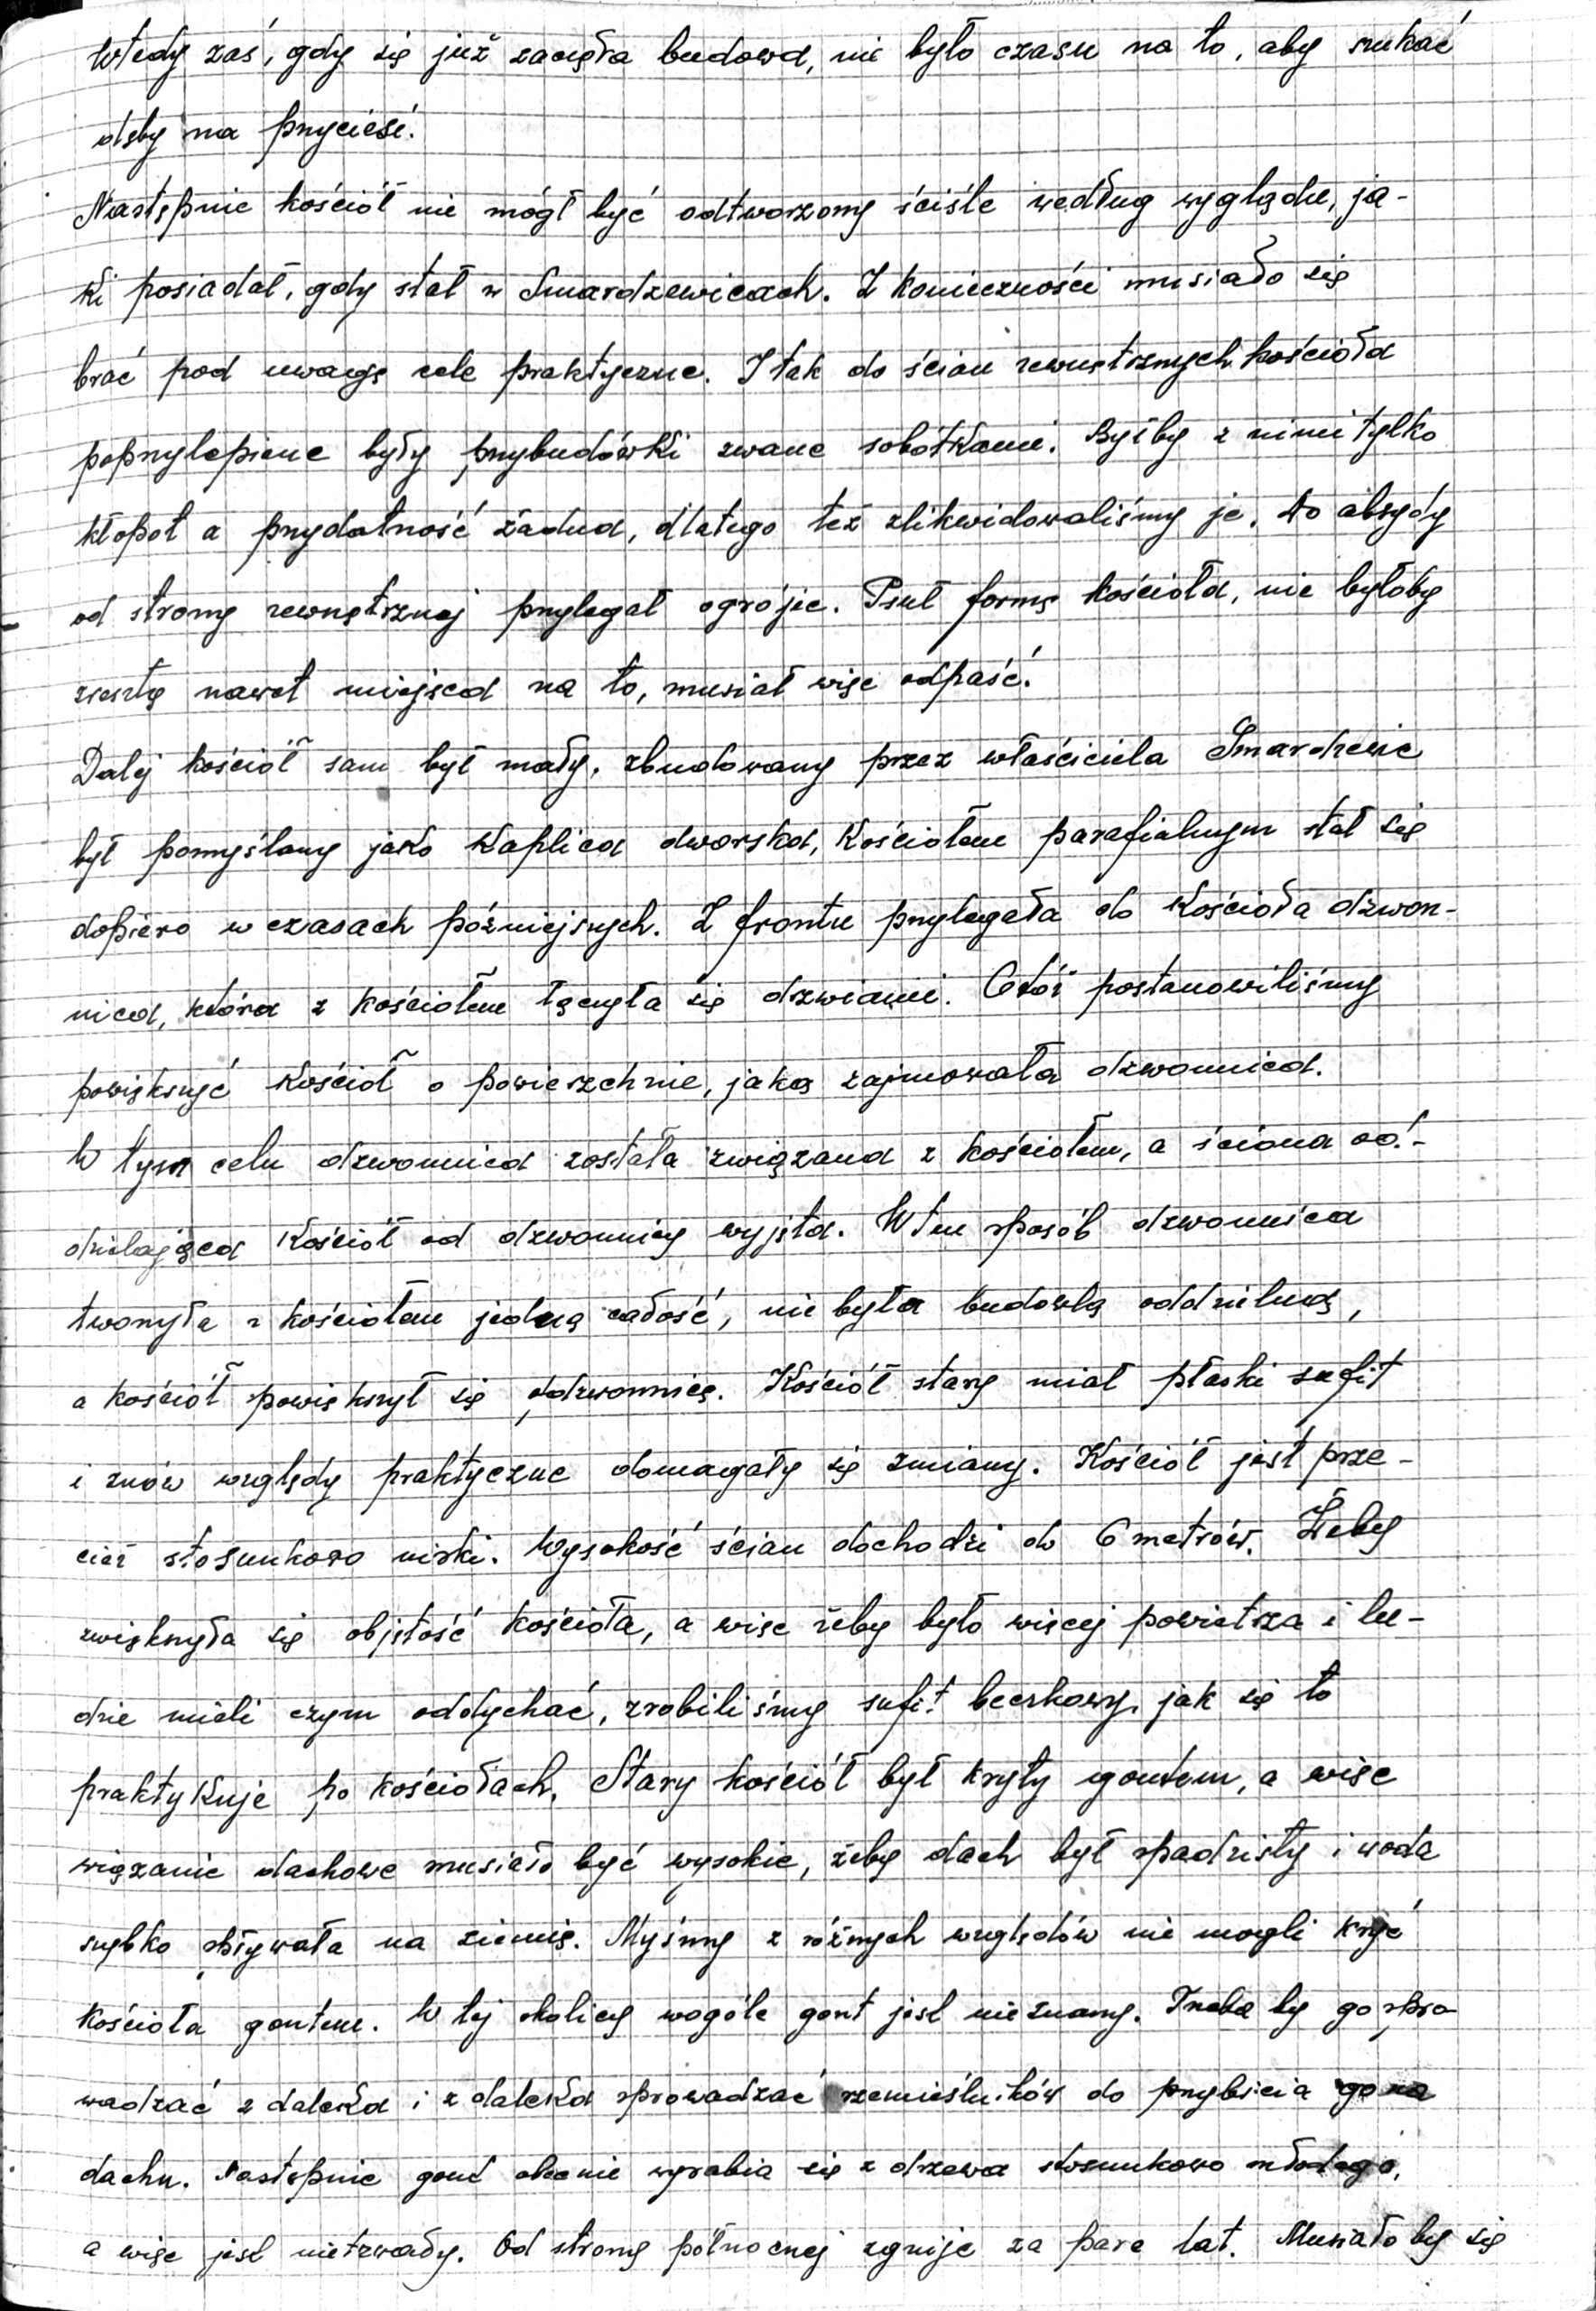 Wtedy zaś, gdy się już zaczęła budowa, nie było czasu na to, aby szukać
dęby na przycieść.
Następnie kościół nie mógł być odtworzony ściśle według wyglądu, ja-
ki posiadał, gdy stał w Smardzewicach. Z konieczności musiało się
brać pod uwagę cele praktyczne. I tak do ścian zewnętrznych kościoła
poprzylepiane były przybudówki zwane sobótkami. Byłby z nimi tylko
kłopot a przydatność żadna, dlatego też zlikwidowaliśmy je. Do absydy
od strony zewnętrznej przylegał ogrojec. Psuł formę kościoła, nie byłoby
zresztą nawet miejsca na to, musiał więc odpaść.
Dalej kościół sam był mały, zbudowany przez właściciela Smardzewic
był pomyślany jako kaplica dworska, kościołem parafialnym stał się
dopiero w czasach późniejszych. Z frontu przylegała do kościoła dzwon-
nica, która z kościołem łączyła się drzwiami. Otóż postanowiliśmy
powiększyć kościół o powierzchnie, jaką zajmowała dzwonnica.
W tym celu dzwonnica została związana z kościołem, a ściana od-
dzielająca kościół od dzwonnicy wyjęta. W ten sposób dzwonnica
tworzyła z kościołem jedną całość, nie była budowlą oddzielną,
a kościół powiększył się o dzwonnicę. Kościół stary miał płaski sufit
i znów względy praktyczne domagały się zmiany. Kościół jest prze-
cież stosunkowo niski. Wysokość ścian dochodzi do 6 metrów. Żeby
zwiększyła się objętość kościoła, a więc żeby było więcej powietrza i lu-
dzie mieli czym oddychać, zrobiliśmy sufit beczkowy, jak się to
praktykuje po kościołach. Stary kościół był kryty gontem, a więc
wiązanie dachowe musiało być wysokie, żeby dach był spadzisty i woda
szybko spływała na ziemię. Myśmy z różnych względów nie mogli kryć
kościoła gontem. W tej okolicy wogóle gont jest nieznany. Trzeba by go spro
wadzać z daleka i z daleka sprowadzać rzemieślników do przybicia go na
dachu. Następnie gont obecnie wyrabia się z drzewa stosunkowo młodego,
a więc jest nietrwały. Od strony północnej zgnije za pare lat. Musiało by się